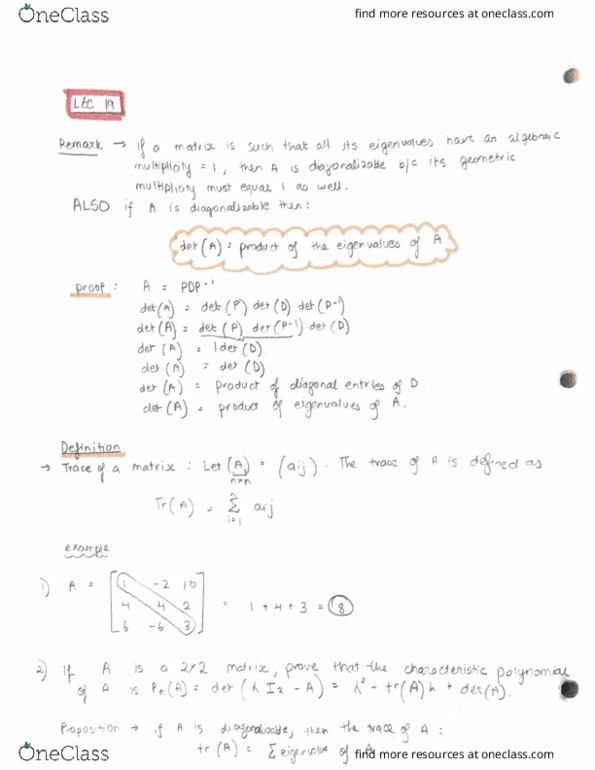 OneClass
find more resources at oneclass.com
LEC 19
Remark → if a matrix is such that all its eigenvalues have an algebraic
multiplicity = 1, then A is diagonalizable b/c its geometric
multiplicity must equal 1 as well.
ALSO if A is diagonalizable then:
det (A) = product of the eigenvalues of A
proof : A = PDP⁻¹
det(A) = det (P) det (D) det (P-1)
det (A) = det (P) det (P-1) det (D)
det (A) = 1 det (D).
det (A) = det (D).
det (A) = product of diagonal entries of D.
det (A) = product of eigenvalues of A.
Definition
→ Trace of a matrix : Let (A) n×n = (aij). The trace of A is defined as
Tr(A) = n Σ i=1 aij
example
1) A = [ 1 -2 10
4 4 2 = 1 + 4 + 3 = 8
6 -6 3 ]
2) If A is a 2x2 matrix, prove that the characteristic polynomial
of A is Pn(A) = det (λ I2 - A) = λ² - tr(A) λ + det(A).
Proposition → if A is diagonalizable, then the trace of A :
tr (A) = Σ eigenvalue of A
OneClass
find more resources at oneclass.com